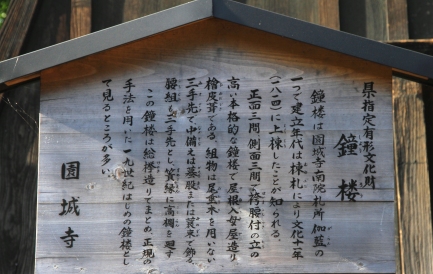 県指定有形文化財
鐘楼
鐘楼は園城寺南院札所伽藍の
一つで建立年代は棟札により文化十一年
(一八一四)に上棟したことが知られる。
正面三間、側面三間で袴腰付の立の
高い本格的な鐘楼で屋根入母屋造り
檜皮葺である。組物は尾垂木を用いない
三手先で中備えは蟇股または蓑束で飾る。
腰組も二手先とし、縁に高欄を廻す
この鐘楼は総欅造りでまとめ、正規の
手法を用いた十九世紀はじめの鐘楼とし
て見るところが多い。
園城寺